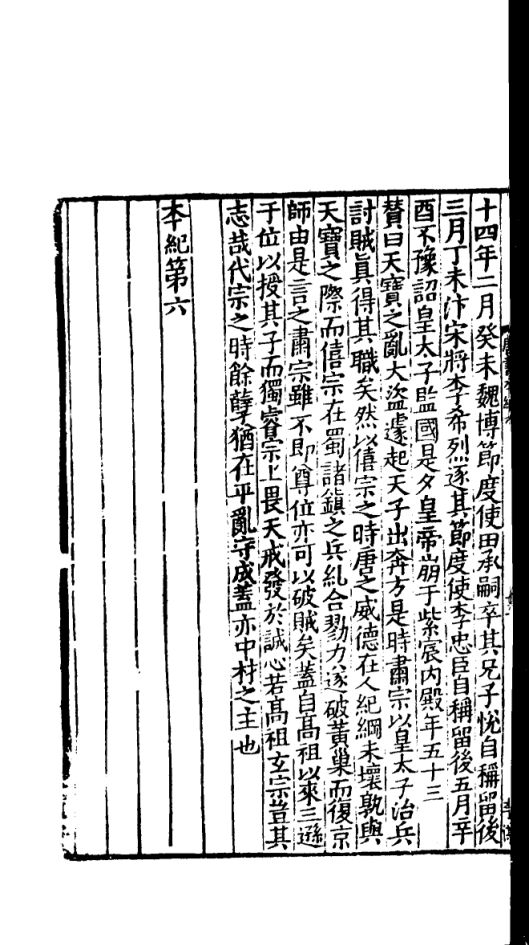 十四年二月癸未魏博節度使田承嗣卒其兄子悅自稱留後
三月丁未汴宋將李希烈逐其節度使李忠臣自稱留後五月辛
酉不豫詔皇太子監國是夕皇帝崩于紫宸內殿年五十三
贊曰天寶之亂大盜遽起天子出奔方是時肅宗以皇太子治兵
討賊眞得其職矣然以僖宗之時唐之威德在人紀綱未壞孰與
天寶之際而僖宗在蜀諸鎮之兵糺合勠力遂破黃巢而復京
師由是言之肅宗雖不即尊位亦可以破賊矣蓋自髙祖以來三遜
于位以授其子而獨睿宗上畏天戒發於誠心若髙祖玄宗豈其
志哉代宗之時餘孽猶在平亂守成蓋亦中材之主也
本紀第六